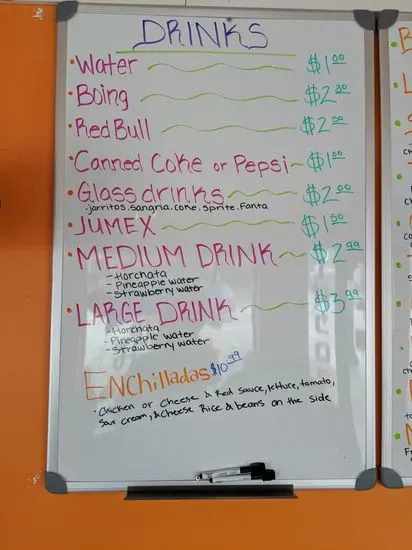 DRINKS
• Water $1.00
• Boing $2.50
• Red Bull $2.50
• Canned Coke or Pepsi $1.00
• Glass drinks $2.00
- jarritos. sangria. coke. sprite. Fanta
• JUMEX $1.50
• MEDIUM DRINK $2.99
- Horchata
- Pineapple water
- Strawberry water
• LARGE DRINK $3.99
- Horchata
- Pineapple water
- Strawberry water
ENchilladas $10.99
• Chicken or Cheese & Red sauce, lettuce, tomato,
Sour cream, & Cheese Rice & beans on the side